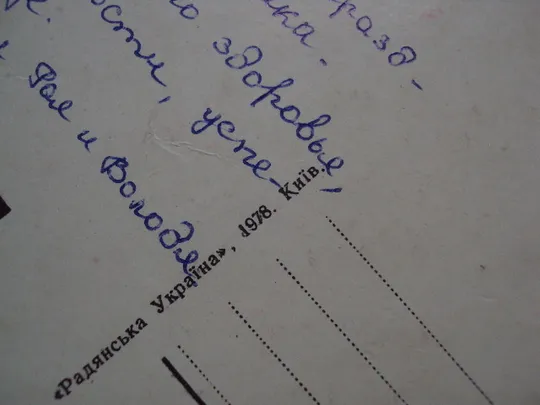 разд-
ка.
здоровья,
ости, успе-
Рая и Володя.
«Радянська Україна», 1978. Київ.